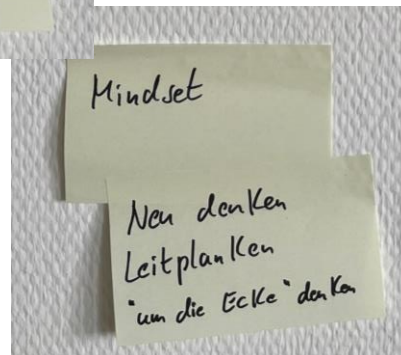 Mindset
Neu denken
Leitplanken
"um die Ecke" denken